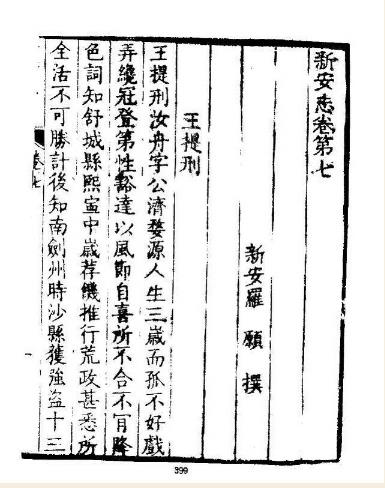 新安志卷第七
新安羅 願 撰
王提刑
王提刑汝舟字公濟婺源人生三歲而孤不好戲
弄纔冠登第性豁達以風節自喜所不合不肯降
色詞知舒城縣熙寧中歲荐饑推行荒政甚悉所
全活不可勝計後知南劍州時沙縣獲強盜十三
卷七
399